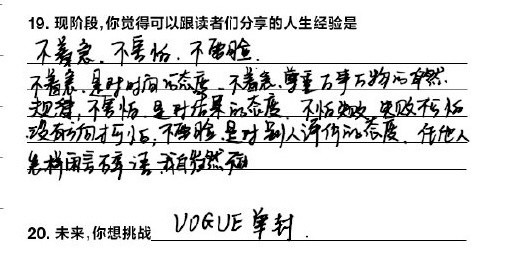 19. 现阶段,你觉得可以跟读者们分享的人生经验是
不着急、不害怕、不要脸.
不着急,是对时间的态度,不着急,尊重万事万物的自然
规律,不害怕,是对结果的态度,不怕失败,失败不可怕
没有何可怕,不要脸,是对别人评价的态度,任他人
怎样闲言碎语,我自岿然不动
20. 未来,你想挑战 VOGUE 单封.